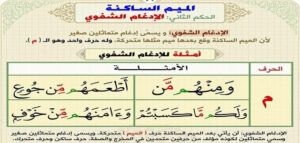 الميم الساكنة
الحكم الثاني: الإدغام الشفوي
الإدغام الشفوي) و يسمى إدغام متماثلين صغير
لأن الميم الساكنة وقع بعدها ميم مثلها متحركة. وله حرف واحد وهو الـ ( م ).
أمثلة للإدغام الشفوي
الحرف
الأمثلة
م
وَمِنْهُم مَّن
أَطْعَمَهُم مِّن جُوعٍ
وَلَكُم مَّا كَسَبْتُمْ
وَءَامَنَهُم مِّنْ خَوْفٍ
الإدغام الشفوي: أن يأتي بعد الميم الساكنة حرف ( الميم ) متحركة. ويسمى إدغام متماثلين صغير.
وسمي متماثلين لكونه مؤلف من حرفين متحدين في المخرج والصفة. حرف ساكن وحرف متحرك.